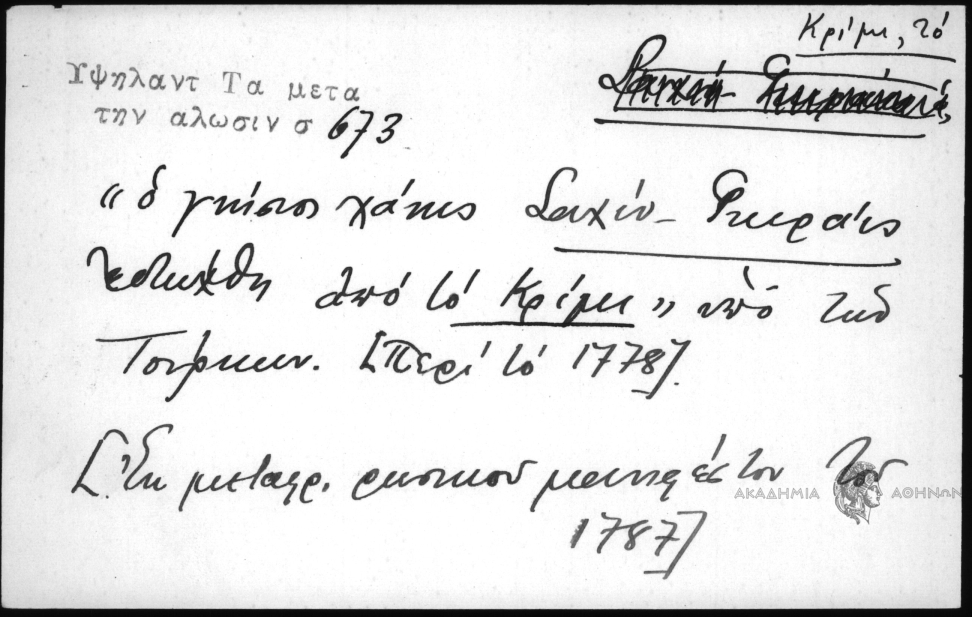 Κρίμι, τό
Υψηλαντ Τα μετα
την αλωσιν σ 673
"ὁ γνήσιος χάνης Σαχίν - Γκιράης
ἀπό τό Κρίμι" ὑπό τῶν
Τούρκων. [Περί τό 1778].
[Ἐκ μεταφρ. ρωσικοῦ μανιφέστου τοῦ
1787]
ΑΚΑΔΗΜΙΑ ΑΘΗΝΩΝ